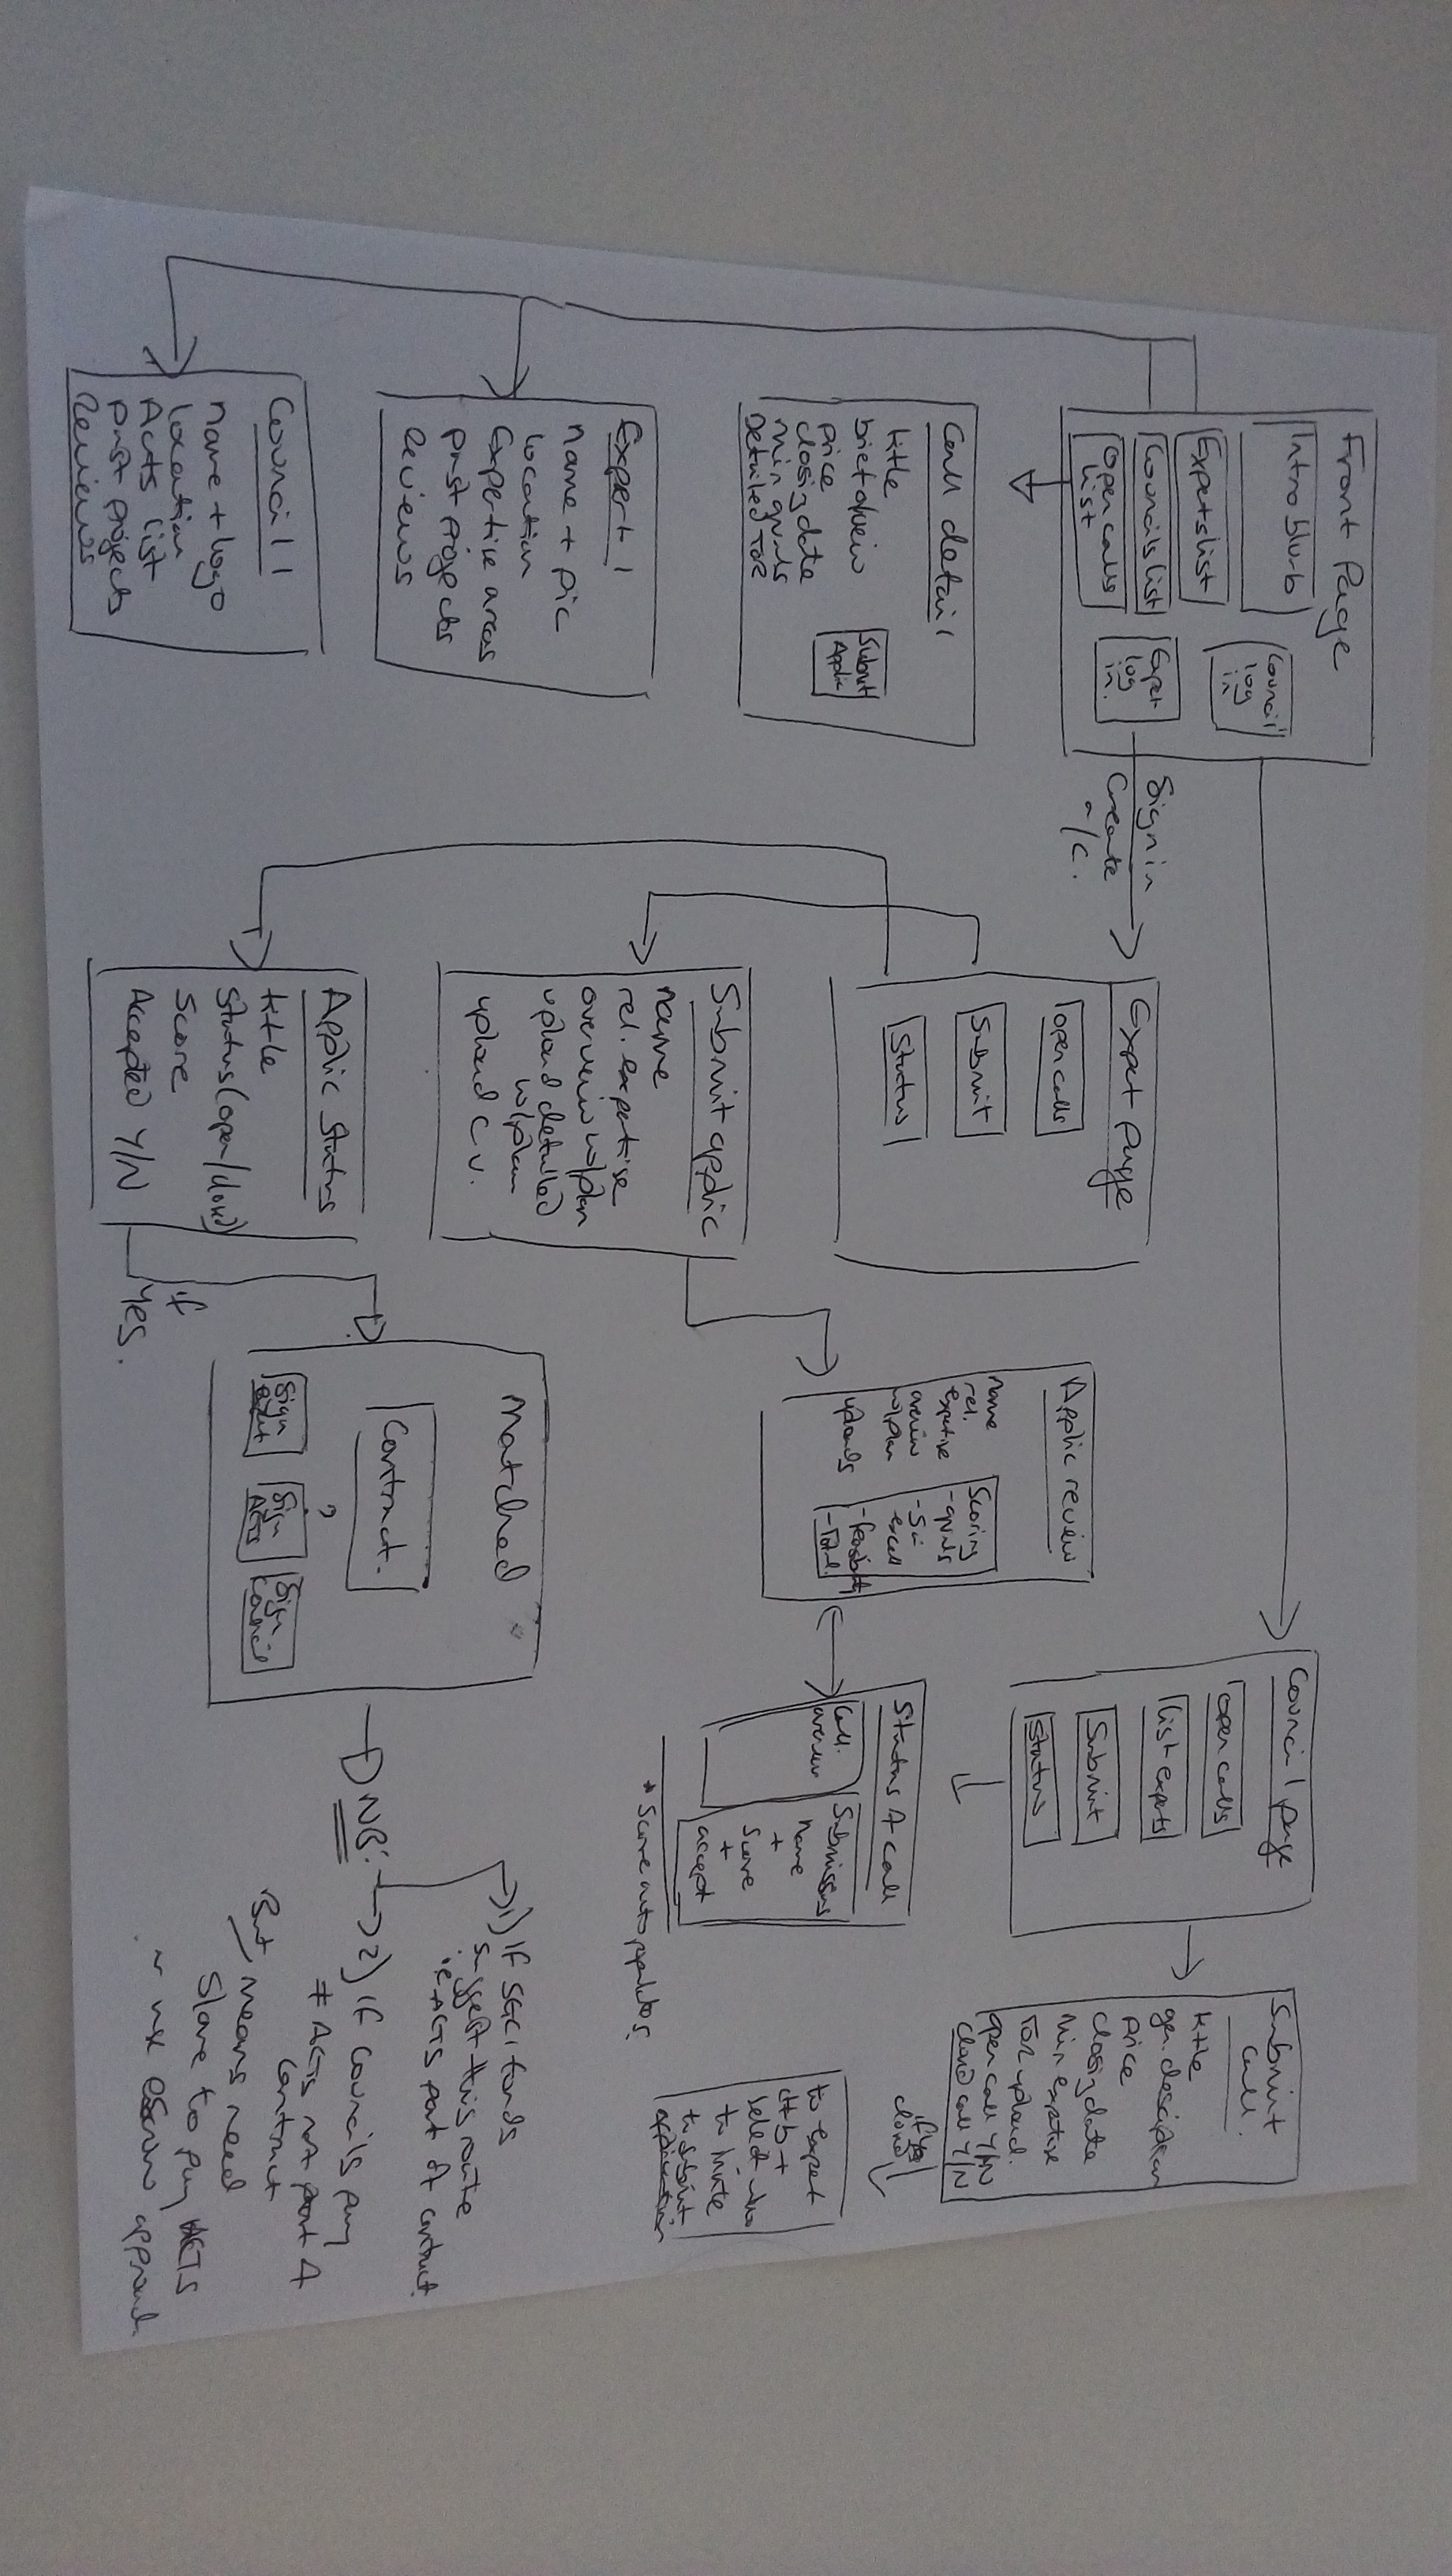 Front Page
Intro blurb
Expertslist
Councils list
Open calls
list
Council
log
in
Exper
log
in.
Sign in
Create
a/c.
Call detail
title
brief overv
price
closing date
min quals
Detailed TOR
Submit
Applic
Expert 1
name + pic
location
Expertise areas
past projects
reviews
Council 1
name + logo
location
Acts list
past projects
Reviews
Expert page
open calls
Submit
Status
Submit applic
name
rel. expertise
overview w/plan
upload detailed
w/plan
upload C.V.
Applic Status
title
Status (open/closed)
Score
Accepted Y/N
if
Yes.
Applic review
name
rel.
expertise
overview
w/plan
uploads
Scoring
- quals
excell
- feasibility
- Total
Matched
Contract.
?
Sign
expert
Sign
ACTS
Sign
Council
Council page
open calls
list experts
Submit
Status
Status of call
Call
overview
Submissions
name
+
Score
+
accept
* Score auto populates
Submit
call.
title
gen. description
price
closing date
min expertise
TOR upload.
open call Y/N
closed call Y/N
if yes
closed
to expert
db +
select who
to invite
to submit
application
NB:
1) If SGCI funds
suggest this route
i.e. ACTS part of contract
2) if Councils pay
# ACTS not part of
Contract
But means need
Slave to pay ACTS
~ use escrow approach